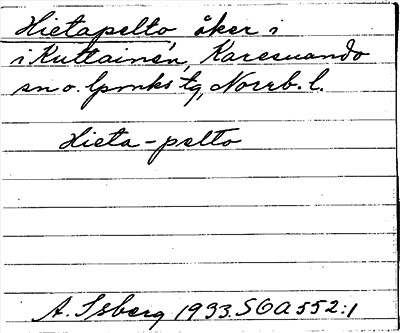 Hietapelto åker i
i Kuttainen, Karesuando
sn o. lpmks tg, Norrb. l.
Hieta-pelto
A. Isberg 1933. SOA 552:1